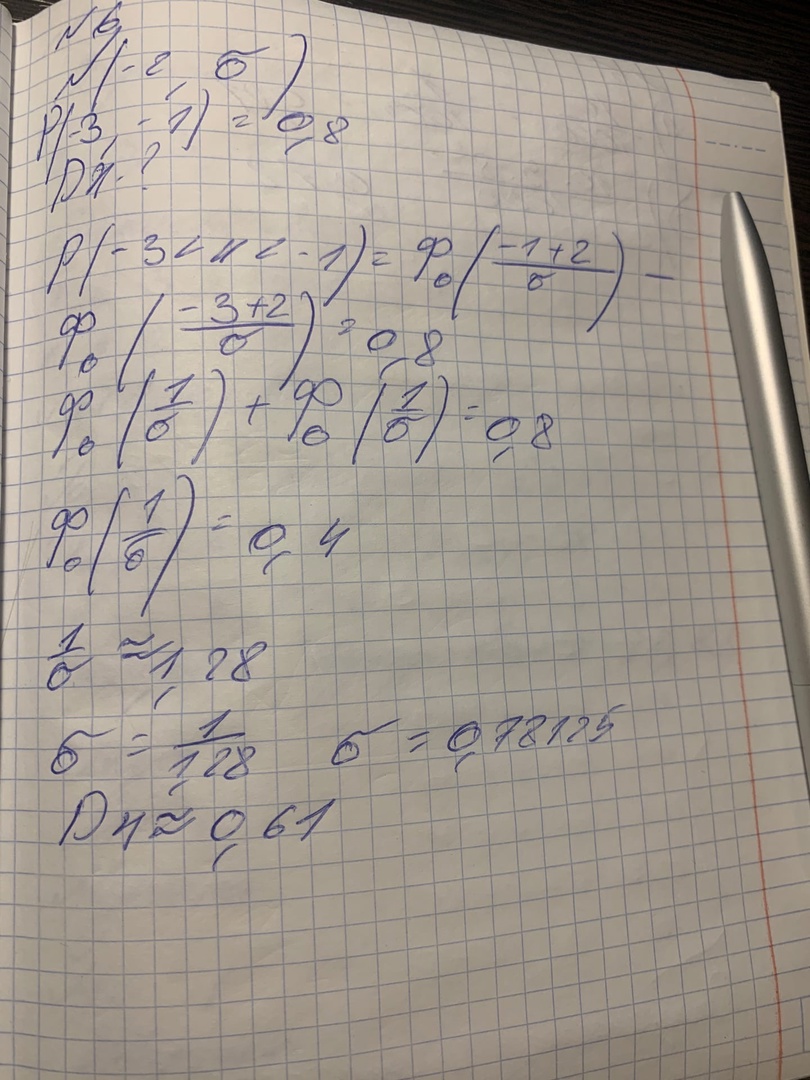 №6
N(-2, σ)
P(-3, -1) = 0,8
Dη-?
P(-3 < η < -1) = Φ₀((-1+2)/σ) -
Φ₀((-3+2)/σ) = 0,8
Φ₀(1/σ) + Φ₀(1/σ) = 0,8
Φ₀(1/σ) = 0,4
1/σ ≈ 1,28
σ = 1/1,28 σ = 0,78125
Dη ≈ 0,61